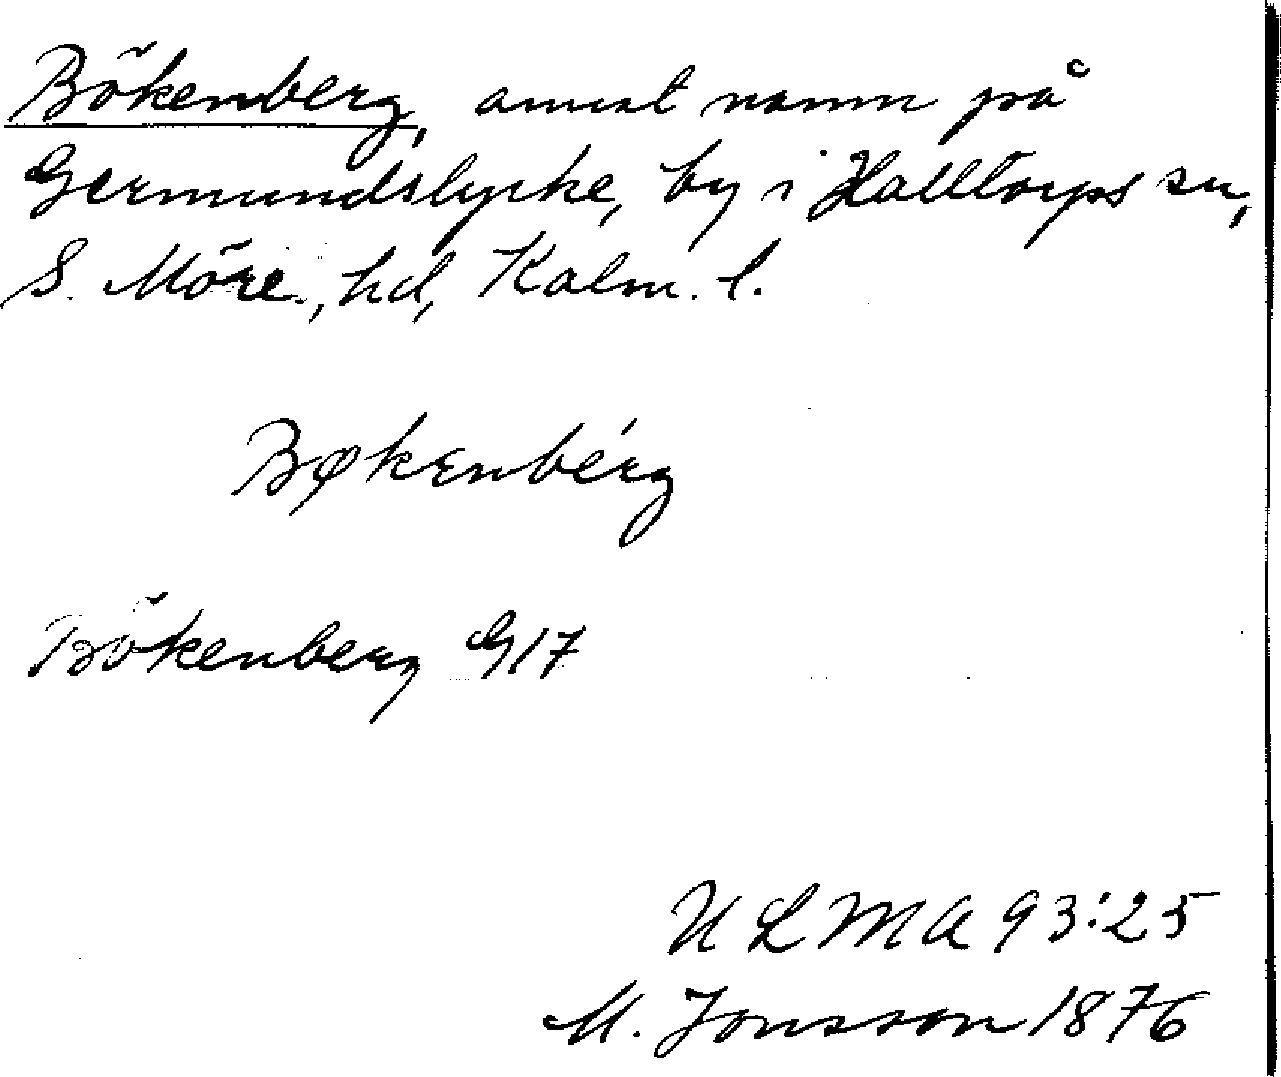 Bökenberg, annat namn på
Germundslycke, by i Halltorps sn,
S. Möre, hd, Kalm. l.
Bøkenbérg
Bökenberg G17
ULMA 93:25
M. Jonsson 1876